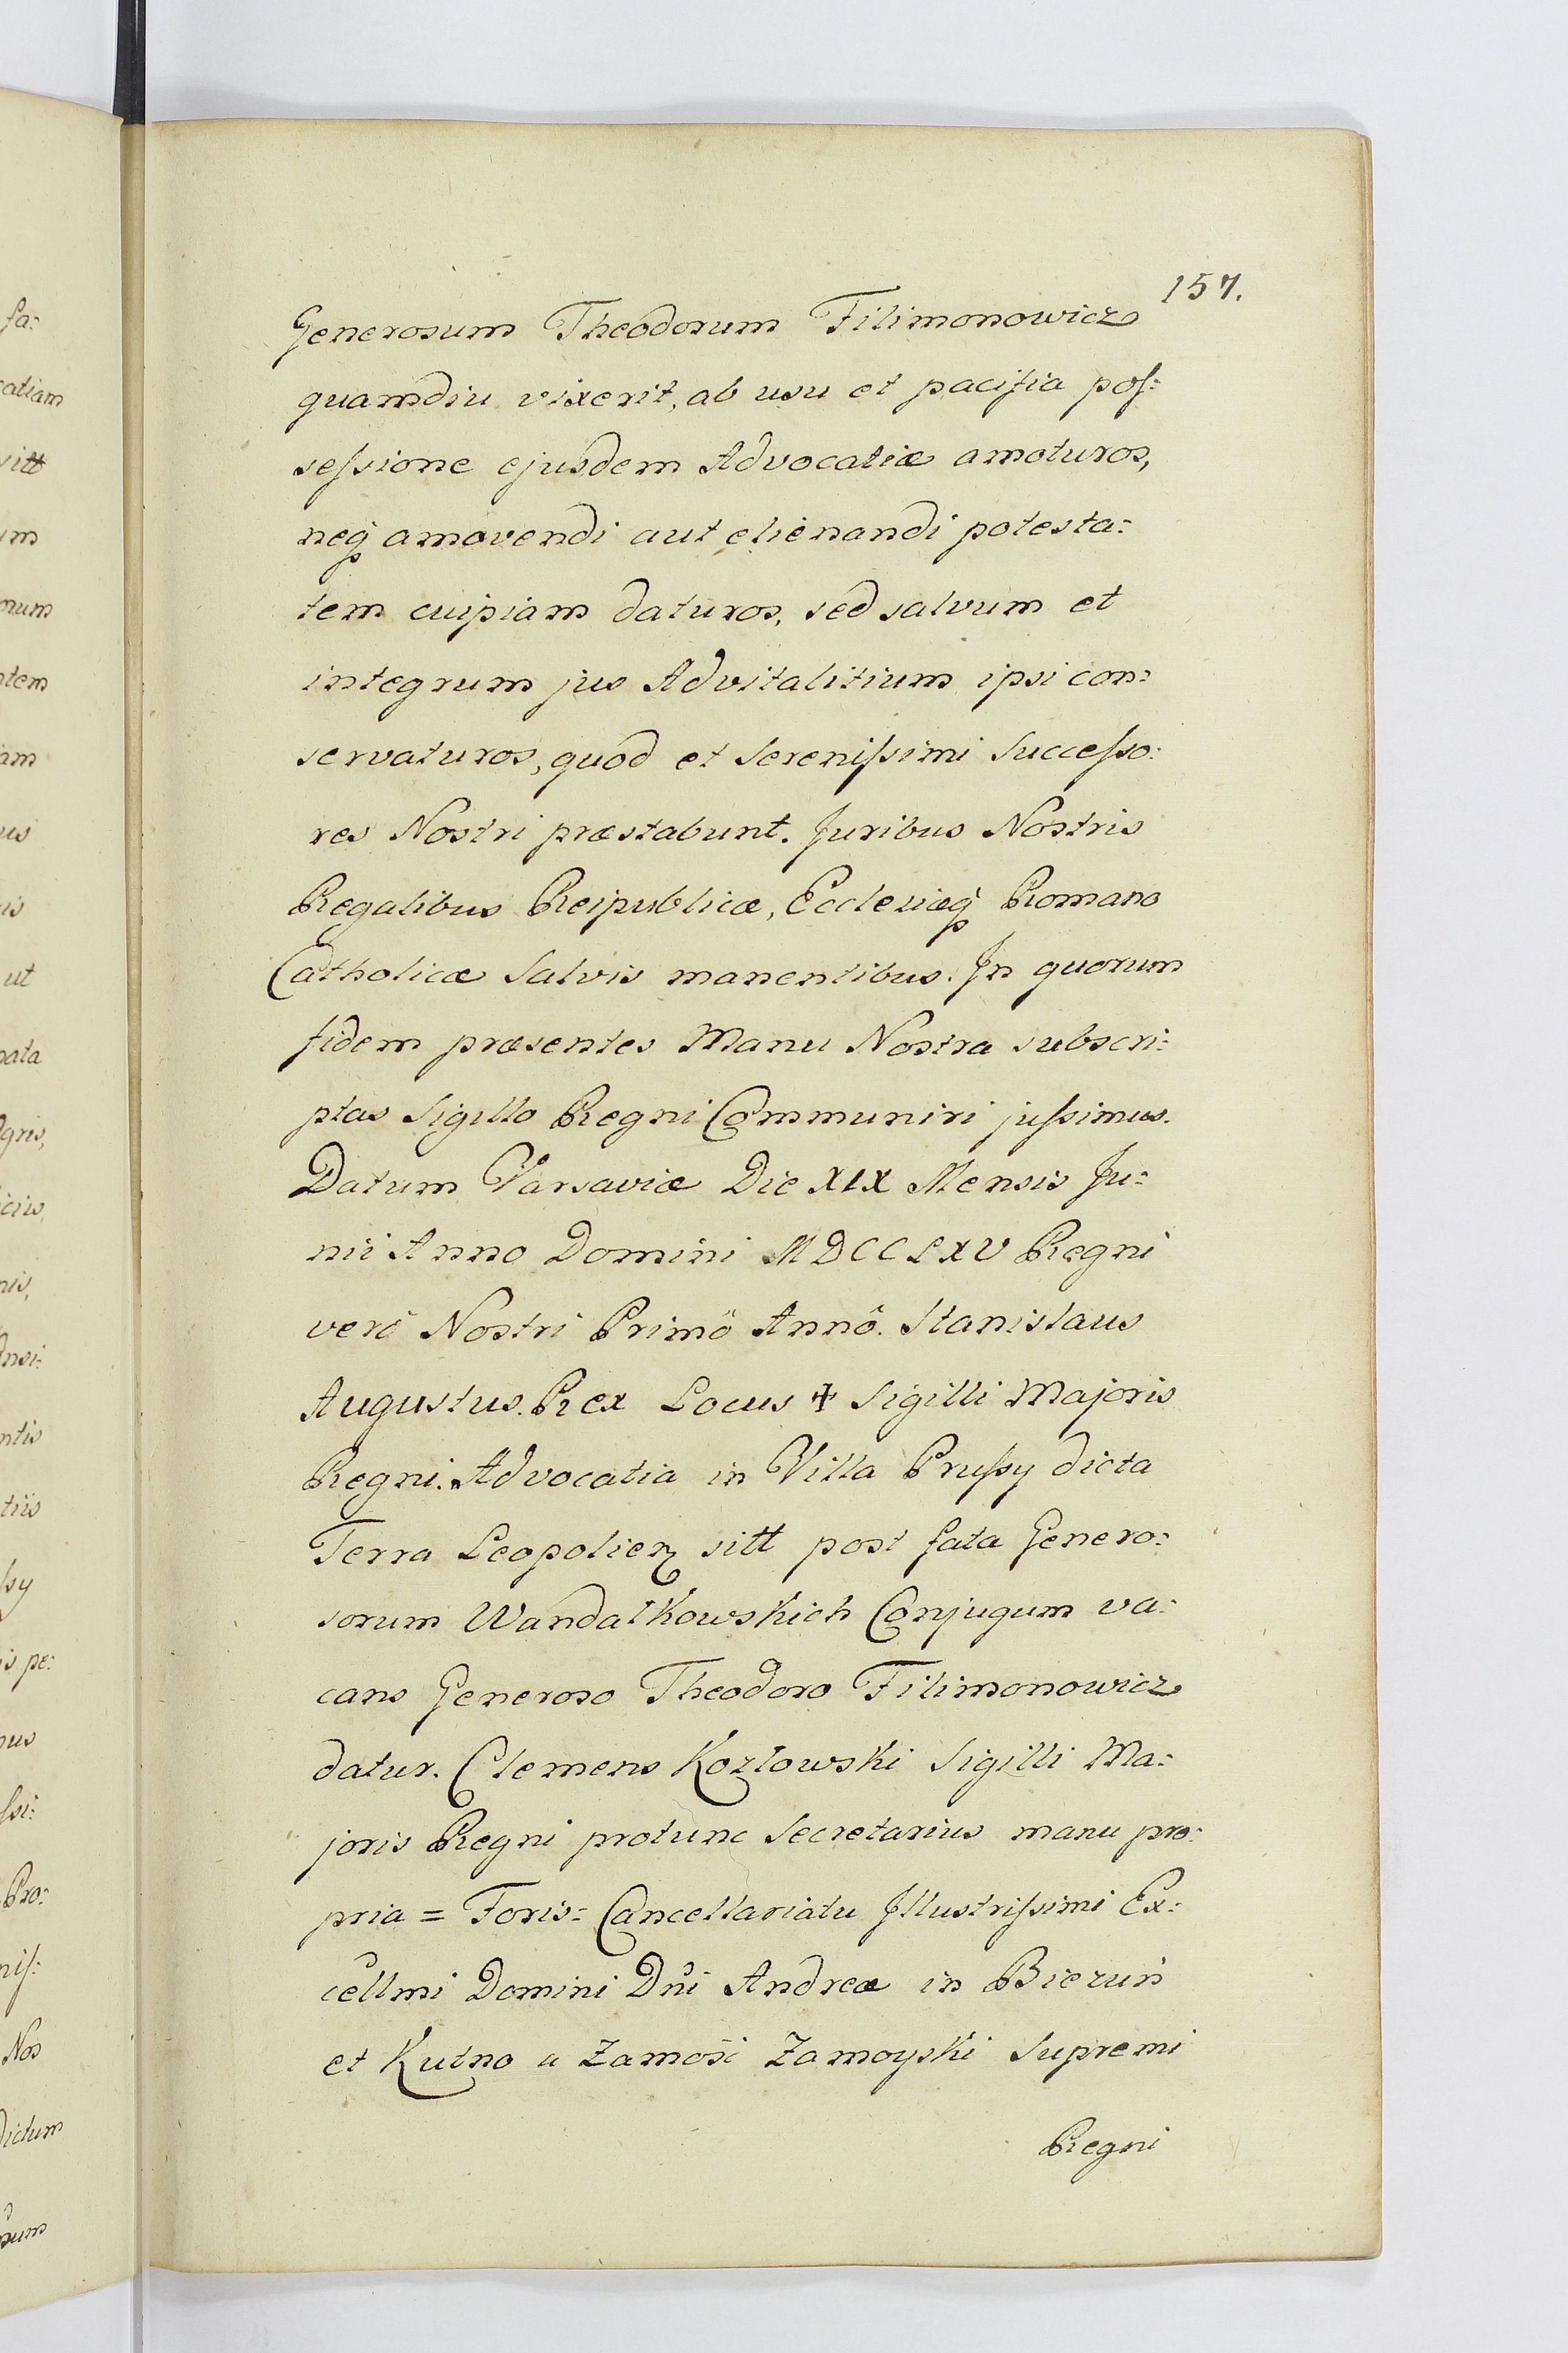 157.
Generosum Theodorum Filimonowicz
quamdiu vixerit, ab usu et pacifia pos:
sessione ejusdem Advocatiæ amoturos,
neq amovendi aut elienandi potesta:
tem cuipiam daturos, sed salvum et
integrum jus Advitalitium ipsi con:
servaturos, quod et Serenissimi Successo:
res Nostri præstabunt. Juribus Nostris
Regalibus Reipublicæ, Ecclesiæq Romano
Catholicæ Salvis manentibus. In quorum
fidem præsentes Manu Nostra subscri:
ptas Sigillo Regni Communiri jussimus.
Datum Varsaviæ Die XIX Mensis Ju:
nii Anno Domini MDCCLXV Regni
verò Nostri Primô Annô. Stanislaus
Augustus. Rex Locus ✝ Sigilli Majoris
Regni. Advocatia in Villa Prussy dicta
Terra Leopolien sitt post fata Genero:
sorum Wandalkowskich Conjugum va:
cans Generoso Theodoro Filimonowicz
datur. Clemens Kozlowski Sigilli Ma:
joris Regni protunc Secretarius manu pro:
pria = Foris = Cancellariatu Illustrissimi Ex:
cellmi Domini Dni Andreæ in Biezuń
et Kutno a Zamośi Zamoyski Supremi
Regni
fa:
catiam
vitt
um
orum
ntem
iam
us
ris
ut
pata
Agris,
iciis,
nis,
Ansi:
ntis
tiis
ssy
is pe:
ssi:
Pro:
nis:
Nos
dictum